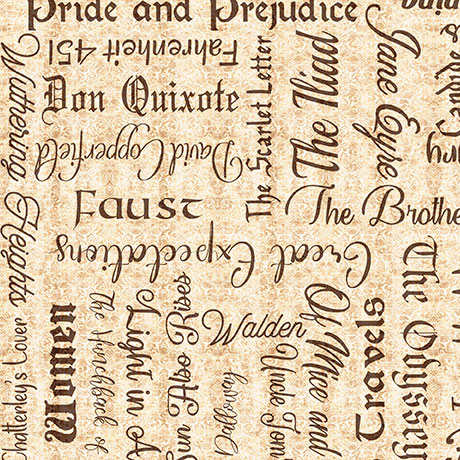 Pride and Prejudice
Fahrenheit 451
Don Quixote
David Copperfield
Faust
Great Expectations
Wuthering Heights
The Scarlet Letter
The Iliad
Jane Eyre
The Brothe
Chatterley's Lover
Women
The Hunchback of
Light in A
Sun Also Rises
Walden
Dalloway
Uncle Tom
Of Mice and
Travels
The Odyssey